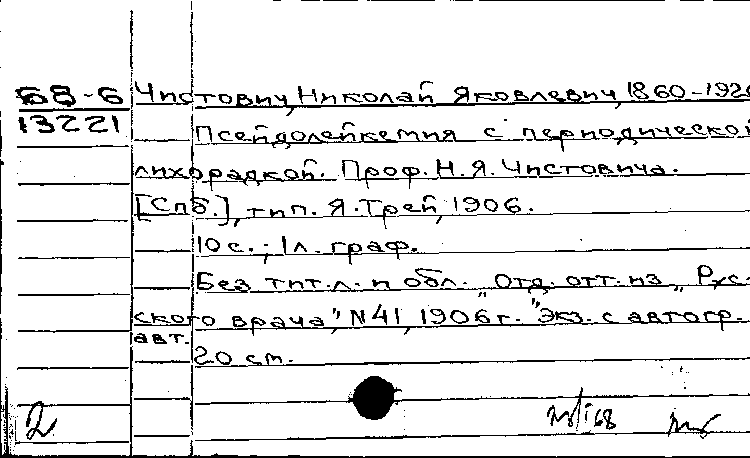 68-6 Чистович, Николай Яковлевич, 1860-1926
13221 Псейдолейкемия с периодической
лихорадкой. Проф. Н. Я. Чистовича.
[Спб.], тип. Я. Трей, 1906.
10 с.; 1 л. граф.
Без тит. л. и обл. "Отд. отт. из „Рус-
ского врача", N 41, 1906 г." Экз. с автогр.
авт.
20 см.
2